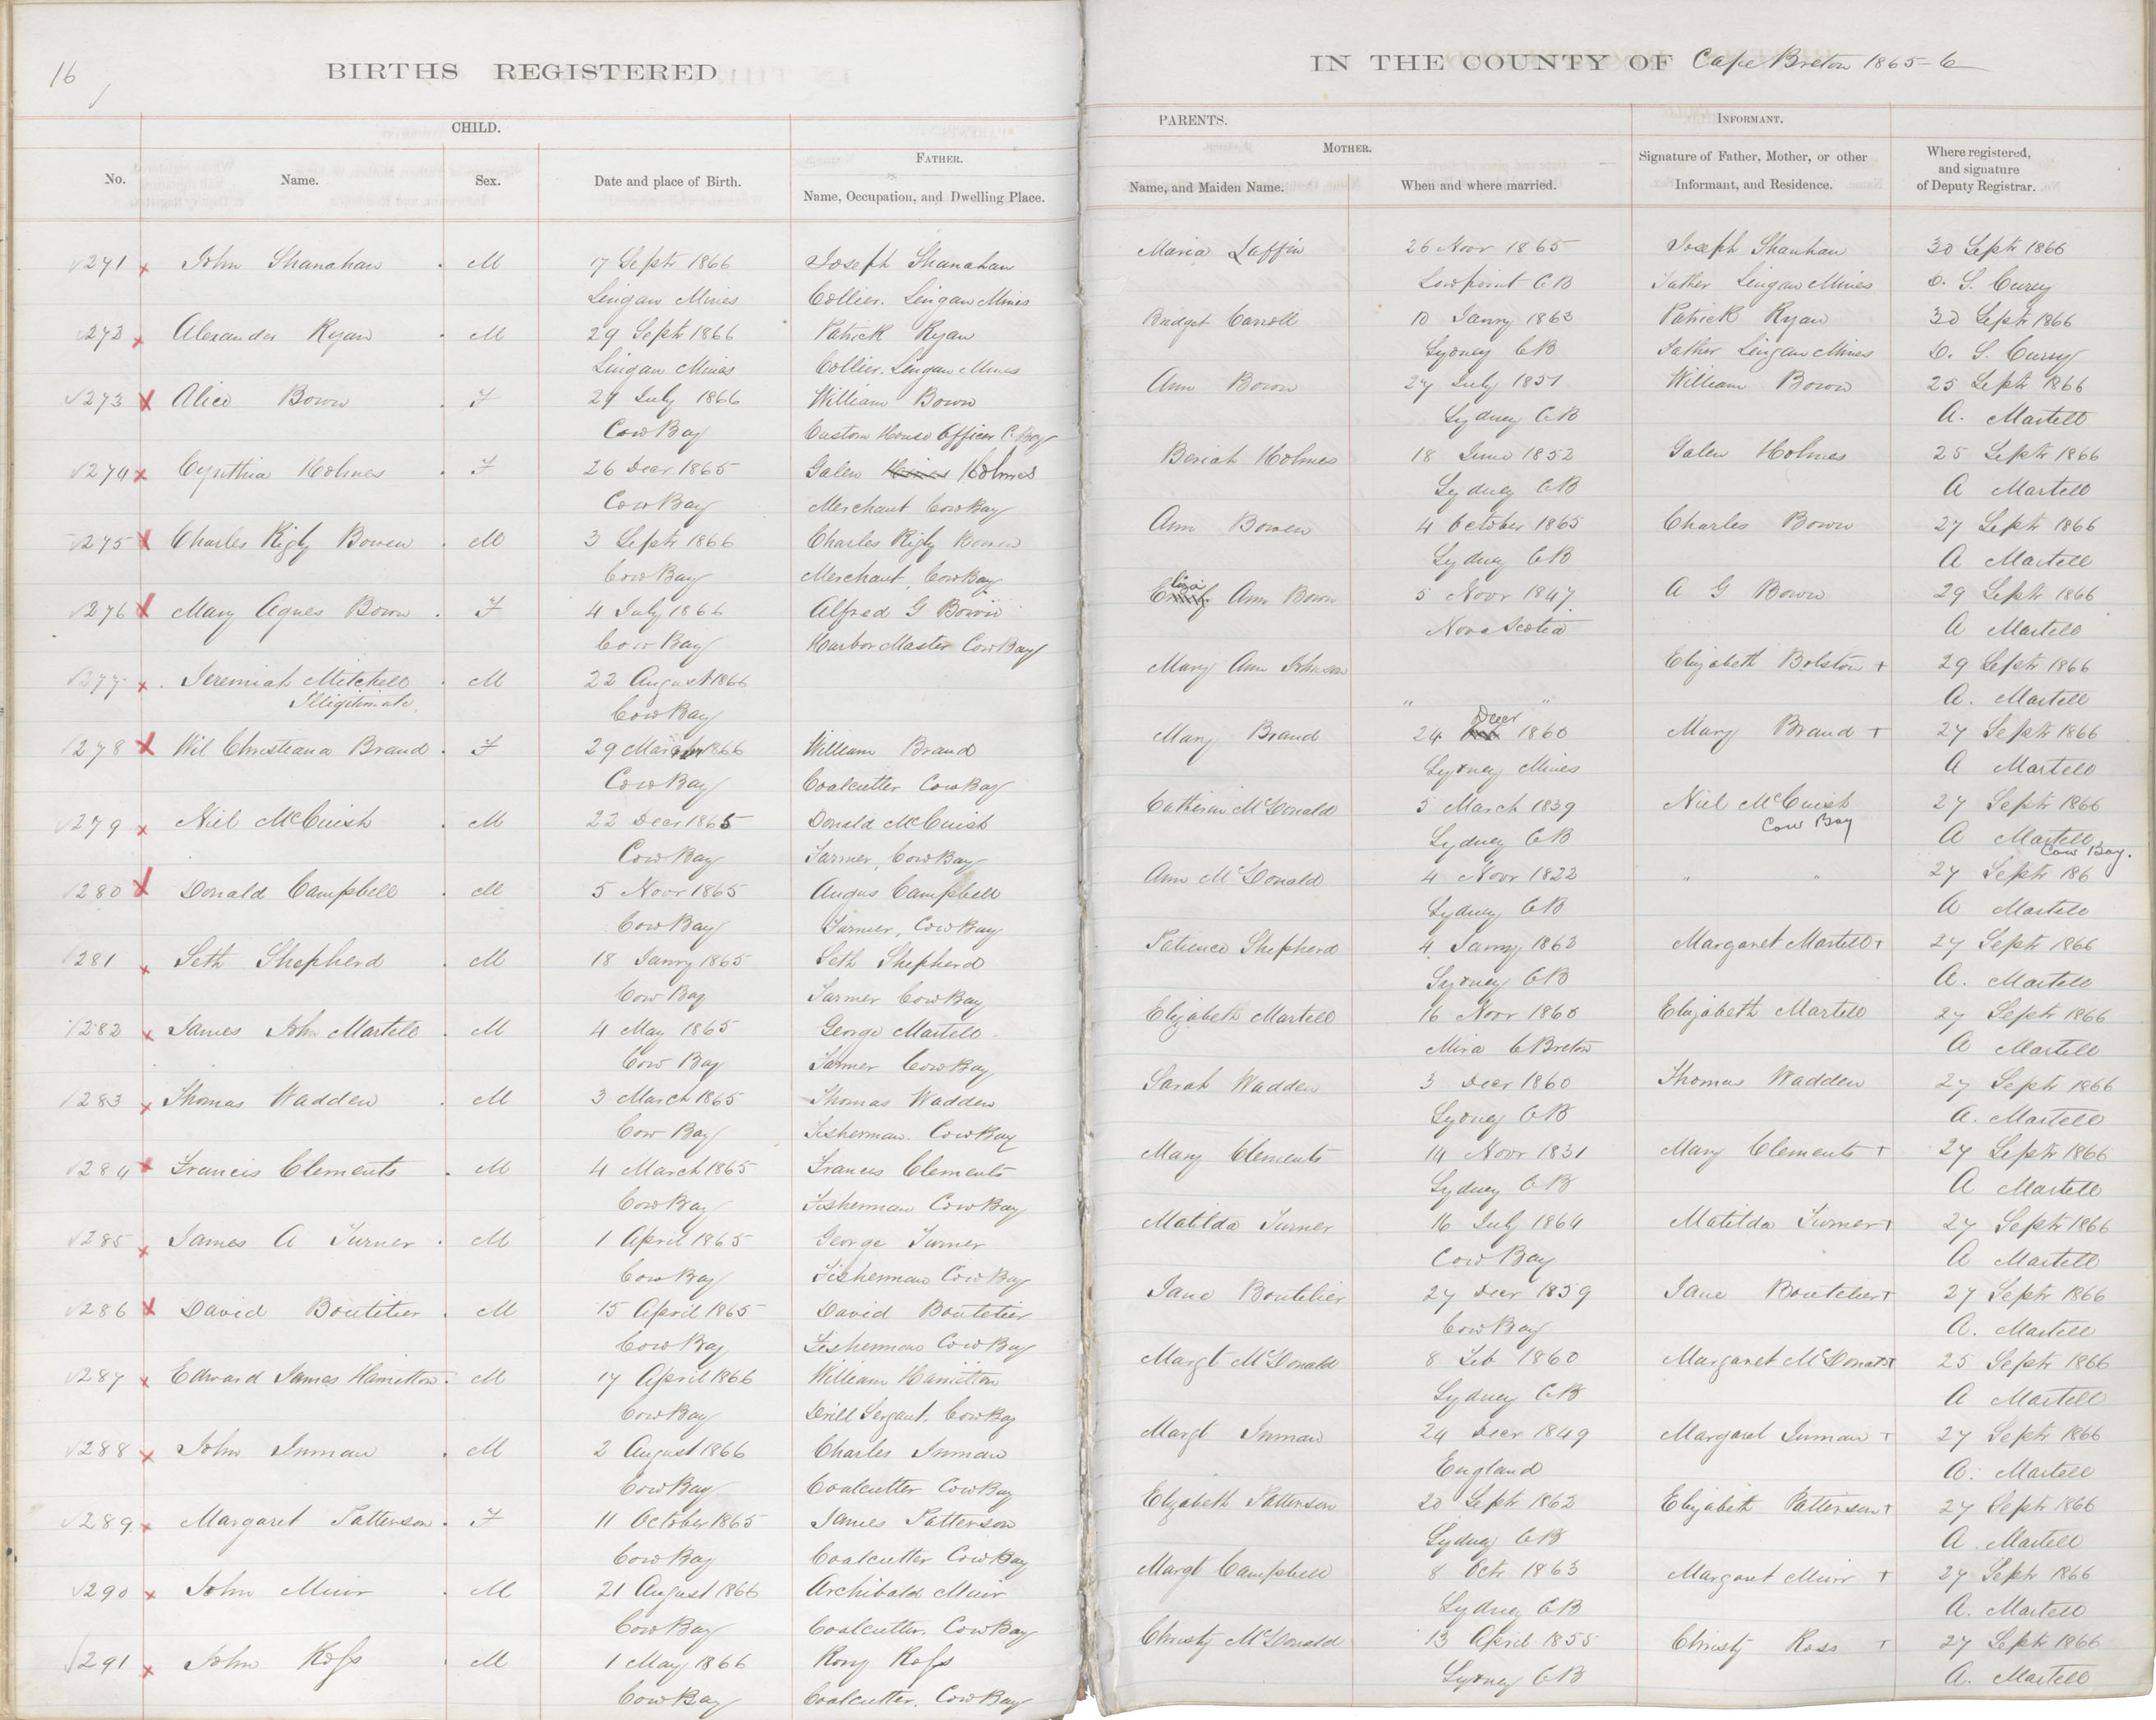 16
BIRTHS REGISTERED
IN THE COUNTY OF Cape Breton 1865-6
CHILD.
No.
Name.
Sex.
Date and place of Birth.
FATHER.
Name, Occupation, and Dwelling Place.
PARENTS.
MOTHER.
Name, and Maiden Name.
When and where married.
INFORMANT.
Signature of Father, Mother, or other
Informant, and Residence.
Where registered,
and signature
of Deputy Registrar.
271 John Shanahan . M 17 Septr 1866 Joseph Shanahan Maria Laffin 26 Novr 1865 Joseph Shanhan 30 Septr 1866
Lingan Mines Collier. Lingan Mines Lowpoint CB Father Lingan Mines D. S. Curry
272 Alexander Ryan . M 29 Septr 1866 Patrick Ryan Bridget Carroll 10 Janry 1863 Patrick Ryan 30 Septr 1866
Lingan Mines Collier. Lingan Mines Sydney CB Father Lingan Mines D. S. Curry
273 Alice Bown . F 27 July 1866 William Bown Ann Bown 27 July 1851 William Bown 25 Septr 1866
Cow Bay Custom House Officer C. Bay Sydney CB A. Martell
274 Cynthia Holmes . F 26 Decr 1865 Galen Holmes Beriah Holmes 18 June 1852 Galen Holmes 25 Septr 1866
Cow Bay Merchant Cow Bay Sydney CB A Martell
275 Charles Rigly Bowen . M 3 Septr 1866 Charles Rigly Bowen Ann Bowen 4 October 1865 Charles Bown 27 Septr 1866
Cow Bay Merchant, Cow Bay Sydney CB A Martell
276 Mary Agnes Bown . F 4 July 1866 Alfred G Bown Eliza Ann Bown 5 Novr 1847 A G Bown 29 Septr 1866
Cow Bay Harbor Master Cow Bay Nova Scotia A Martell
277 Jeremiah Mitchell . M 22 August 1866 Mary Ann Johnson Elizabeth Bolston + 29 Septr 1866
Illigitimate Cow Bay " " A. Martell
278 Wil Christiana Brand . F 29 March 1866 William Brand Mary Brand 24 Decr 1860 Mary Brand + 27 Septr 1866
Cow Bay Coalcutter Cow Bay Sydney Mines A Martell
279 Niel McCuish . M 22 Decr 1865 Donald McCuish Catherine McDonald 5 March 1839 Niel McCuish 27 Septr 1866
Cow Bay Farmer, Cow Bay Sydney CB Cow Bay A Martell Cow Bay.
280 Donald Campbell . M 5 Novr 1865 Angus Campbell Ann McDonald 4 Novr 1822 " " 27 Septr 186
Cow Bay Farmer, Cow Bay Sydney CB A Martell
281 Seth Shepherd . M 18 Janry 1865 Seth Shepherd Patience Shepherd 4 Janry 1862 Margaret Martell + 27 Septr 1866
Cow Bay Farmer Cow Bay Sydney CB A. Martell
282 James John Martell . M 4 May 1865 George Martell Elizabeth Martell 16 Novr 1860 Elizabeth Martell 27 Septr 1866
Cow Bay Farmer Cow Bay Mira C Breton A Martell
283 Thomas Wadden . M 3 March 1865 Thomas Wadden Sarah Wadden 3 Decr 1860 Thomas Wadden 27 Septr 1866
Cow Bay Fisherman. Cow Bay Sydney CB A. Martell
284 Francis Clements . M 4 March 1865 Francis Clements Mary Clements 14 Novr 1831 Mary Clements + 27 Septr 1866
Cow Bay Fisherman Cow Bay Sydney CB A Martell
285 James A Turner . M 1 April 1865 George Turner Matilda Turner 16 July 1864 Matilda Turner + 27 Septr 1866
Cow Bay Fisherman Cow Bay Cow Bay A Martell
286 David Boutilier . M 15 April 1865 David Boutelier Jane Boutilier 27 Decr 1859 Jane Boutelier + 27 Septr 1866
Cow Bay Fisherman Cow Bay Cow Bay A. Martell
287 Edward James Hamilton . M 17 April 1866 William Hamilton Margt McDonald 8 Feb 1860 Margaret McDonald + 25 Septr 1866
Cow Bay Drill Sergant. Cow Bay Sydney CB A Martell
288 John Inman . M 2 August 1866 Charles Inman Margt Inman 24 Decr 1849 Margaret Inman + 27 Septr 1866
Cow Bay Coalcutter Cow Bay England A. Martell
289 Margaret Patterson . F 11 October 1865 James Patterson Elizabeth Patterson 20 Septr 1862 Elizabeth Patterson + 27 Septr 1866
Cow Bay Coalcutter Cow Bay Sydney CB A. Martell
290 John Muir . M 21 August 1866 Archibald Muir Margt Campbell 8 Octr 1863 Margaret Muir + 27 Septr 1866
Cow Bay Coalcutter. Cow Bay Sydney CB A. Martell
291 John Ross . M 1 May 1866 Rory Ross Christy McDonald 13 April 1855 Christy Ross + 27 Septr 1866
Cow Bay Coalcutter. Cow Bay Sydney CB A. Martell